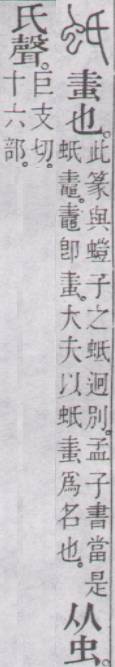 𧊅也。
此篆與螘子之蚔迥別。孟子書當是
蚔鼃。鼃卽𧊅。大夫以蚔𧊅爲名也。
从虫。
氏聲。
巨支切。
十六部。